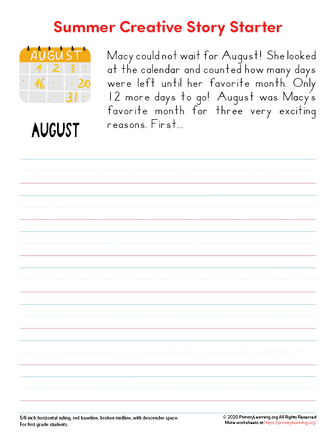 Summer Creative Story Starter
AUGUST
1 2 3
16 20
31
AUGUST
Macy could not wait for August! She looked
at the calendar and counted how many days
were left until her favorite month. Only
12 more days to go! August was Macy's
favorite month for three very exciting
reasons. First...
5/8 inch horizontal ruling, red baseline, broken midline, with descender space.
For first grade students.
© 2020 PrimaryLearning.org All Rights Reserved
More worksheets at https://primarylearning.org/